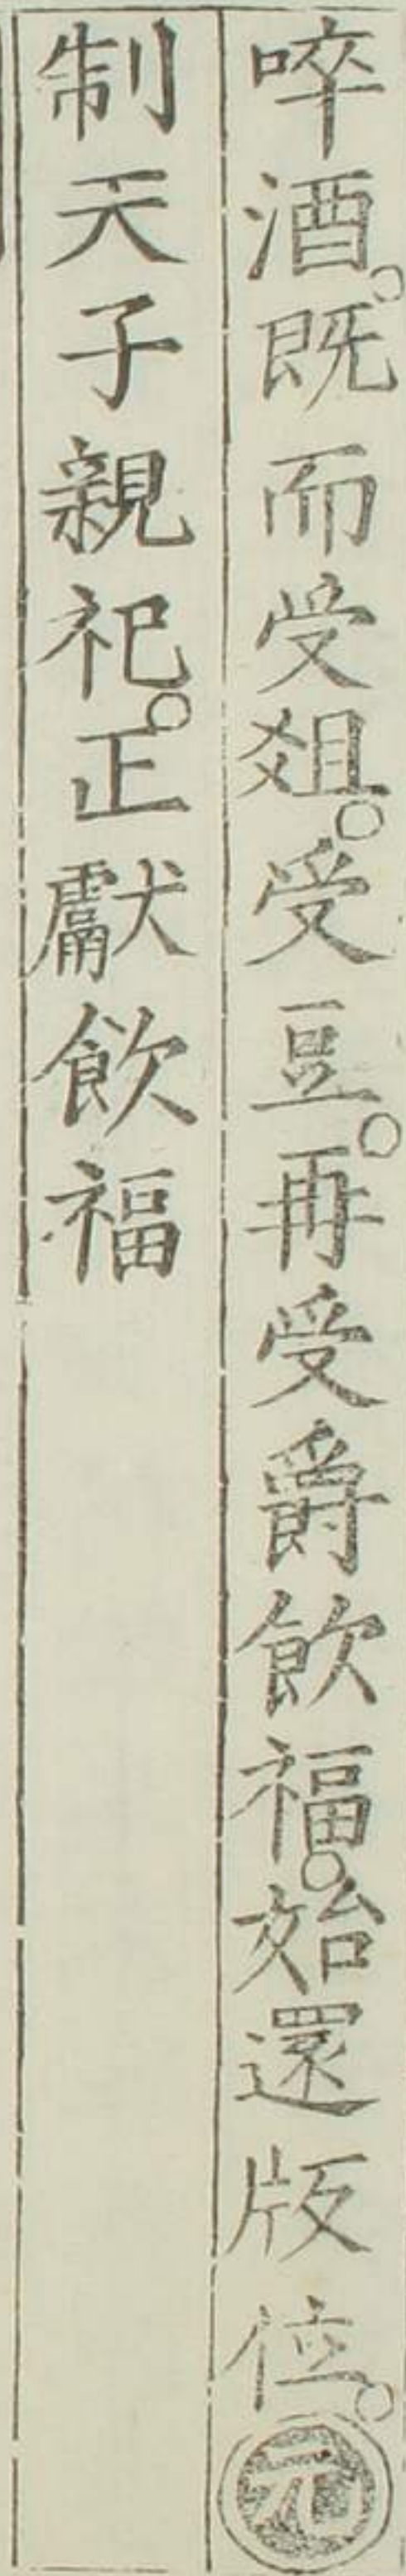 啐酒。既而受爼。受豆。再受爵飮福。始還版位。元
制天子親祀。正獻飮福